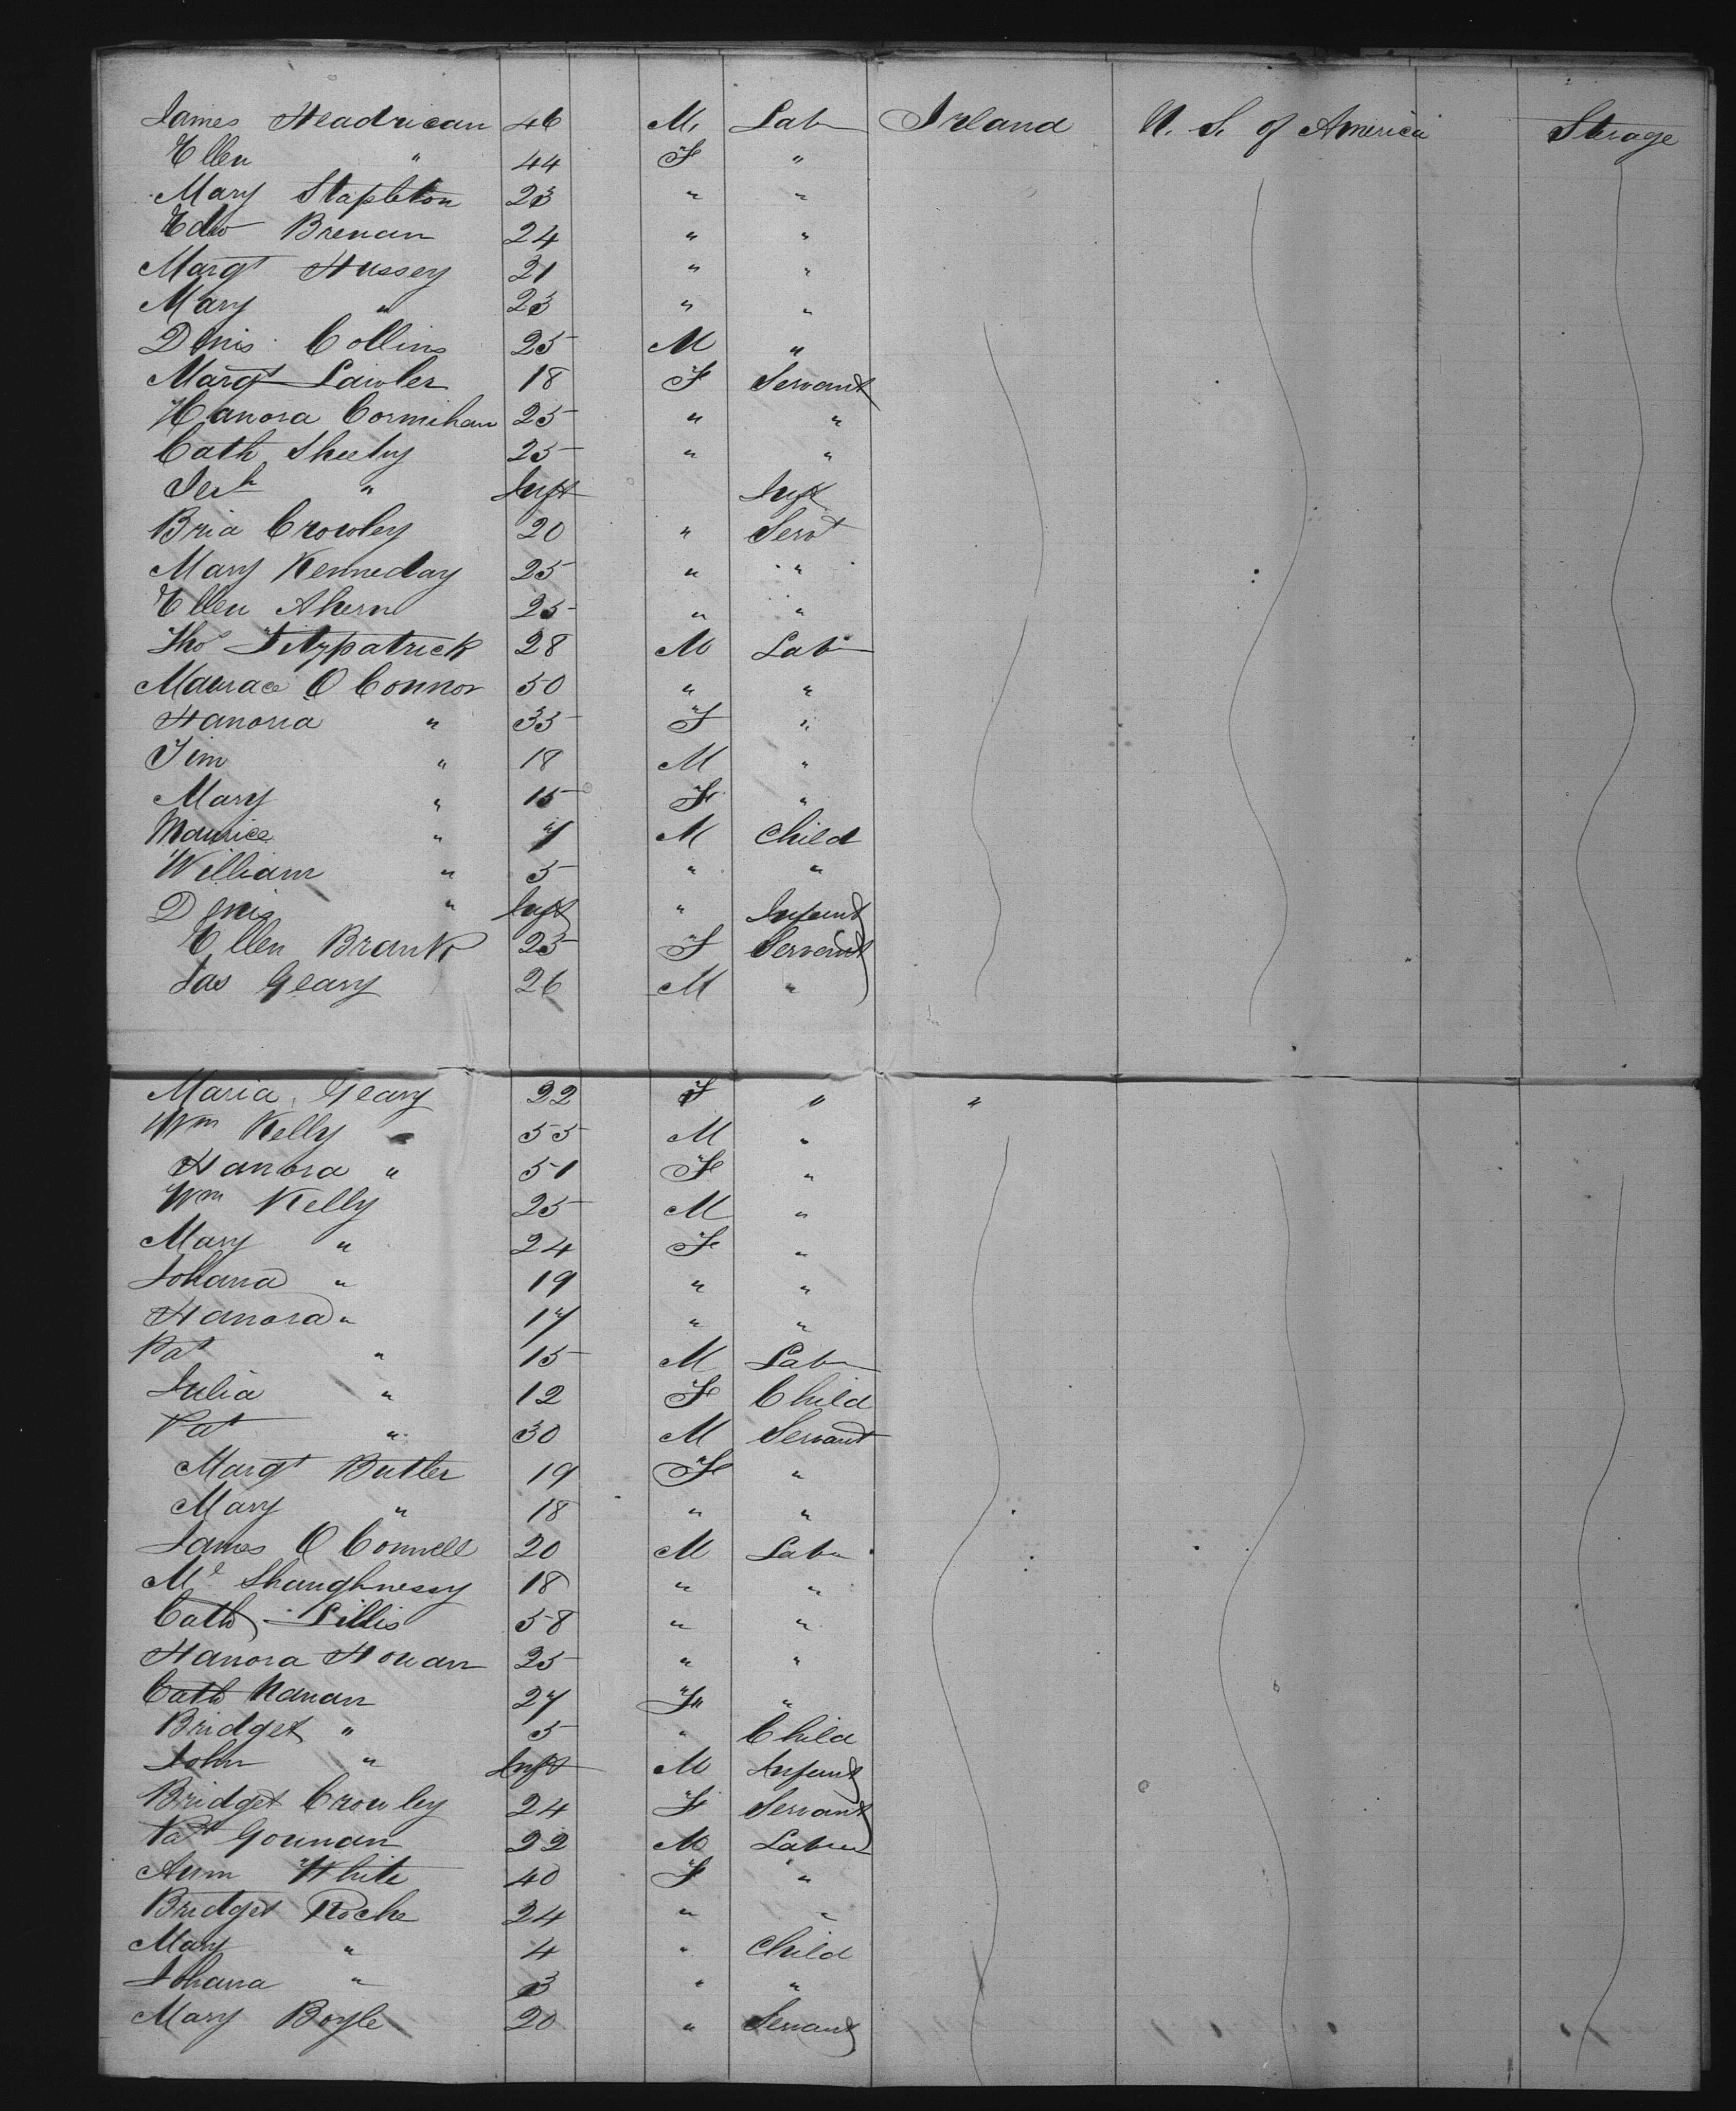 James Headrican 46 M. Lab Irland U. S. of America Sterage
Ellen " 44 F "
Mary Stapleton 23 " "
Edw Brenan 24 " "
Margt Hussey 21 " "
Mary " 23 " "
Denis Collins 25 M "
Margt Lawler 18 F Servant
Hanora Cormihan 25 " "
Cath Sheehy 25 " "
" Inft Inft
Bria Crowley 20 " Servt
Mary Kenneday 25 " "
Ellen Ahern 25 " "
Thos Fitzpatrick 28 M Lab
Maurace O Connor 50 " "
Hanoria " 35 F "
Tim " 18 M "
Mary " 15 F "
Maurice " 7 M Child
William " 5 " "
Denis " Inft " Infant
Ellen Brank 25 F Servant
Jas Geary 26 M "
Maria Geary 22 F " "
Wm Kelly 55 M "
Hanora " 51 F "
Wm Kelly 25 M "
Mary " 24 F "
Johana " 19 " "
Hanora " 17 " "
Pat " 15 M Lab
Julia " 12 F Child
Pat " 30 M Servant
Margt Butler 19 F "
Mary " 18 " "
James O Connell 20 M Lab
Ml Shaughnessy 18 " "
Cath Lillis 58 " "
Hanora Houan 25 " "
Cath Nanan 27 F "
Bridget " 5 " Child
John " Inft M Infant
Bridget Crowley 24 F Servant
Pat Gounan 22 M Labr
Ann White 40 F "
Bridget Roche 24 " "
Mary " 4 " Child
Johana " 3 " "
Mary Boyle 20 " Servant